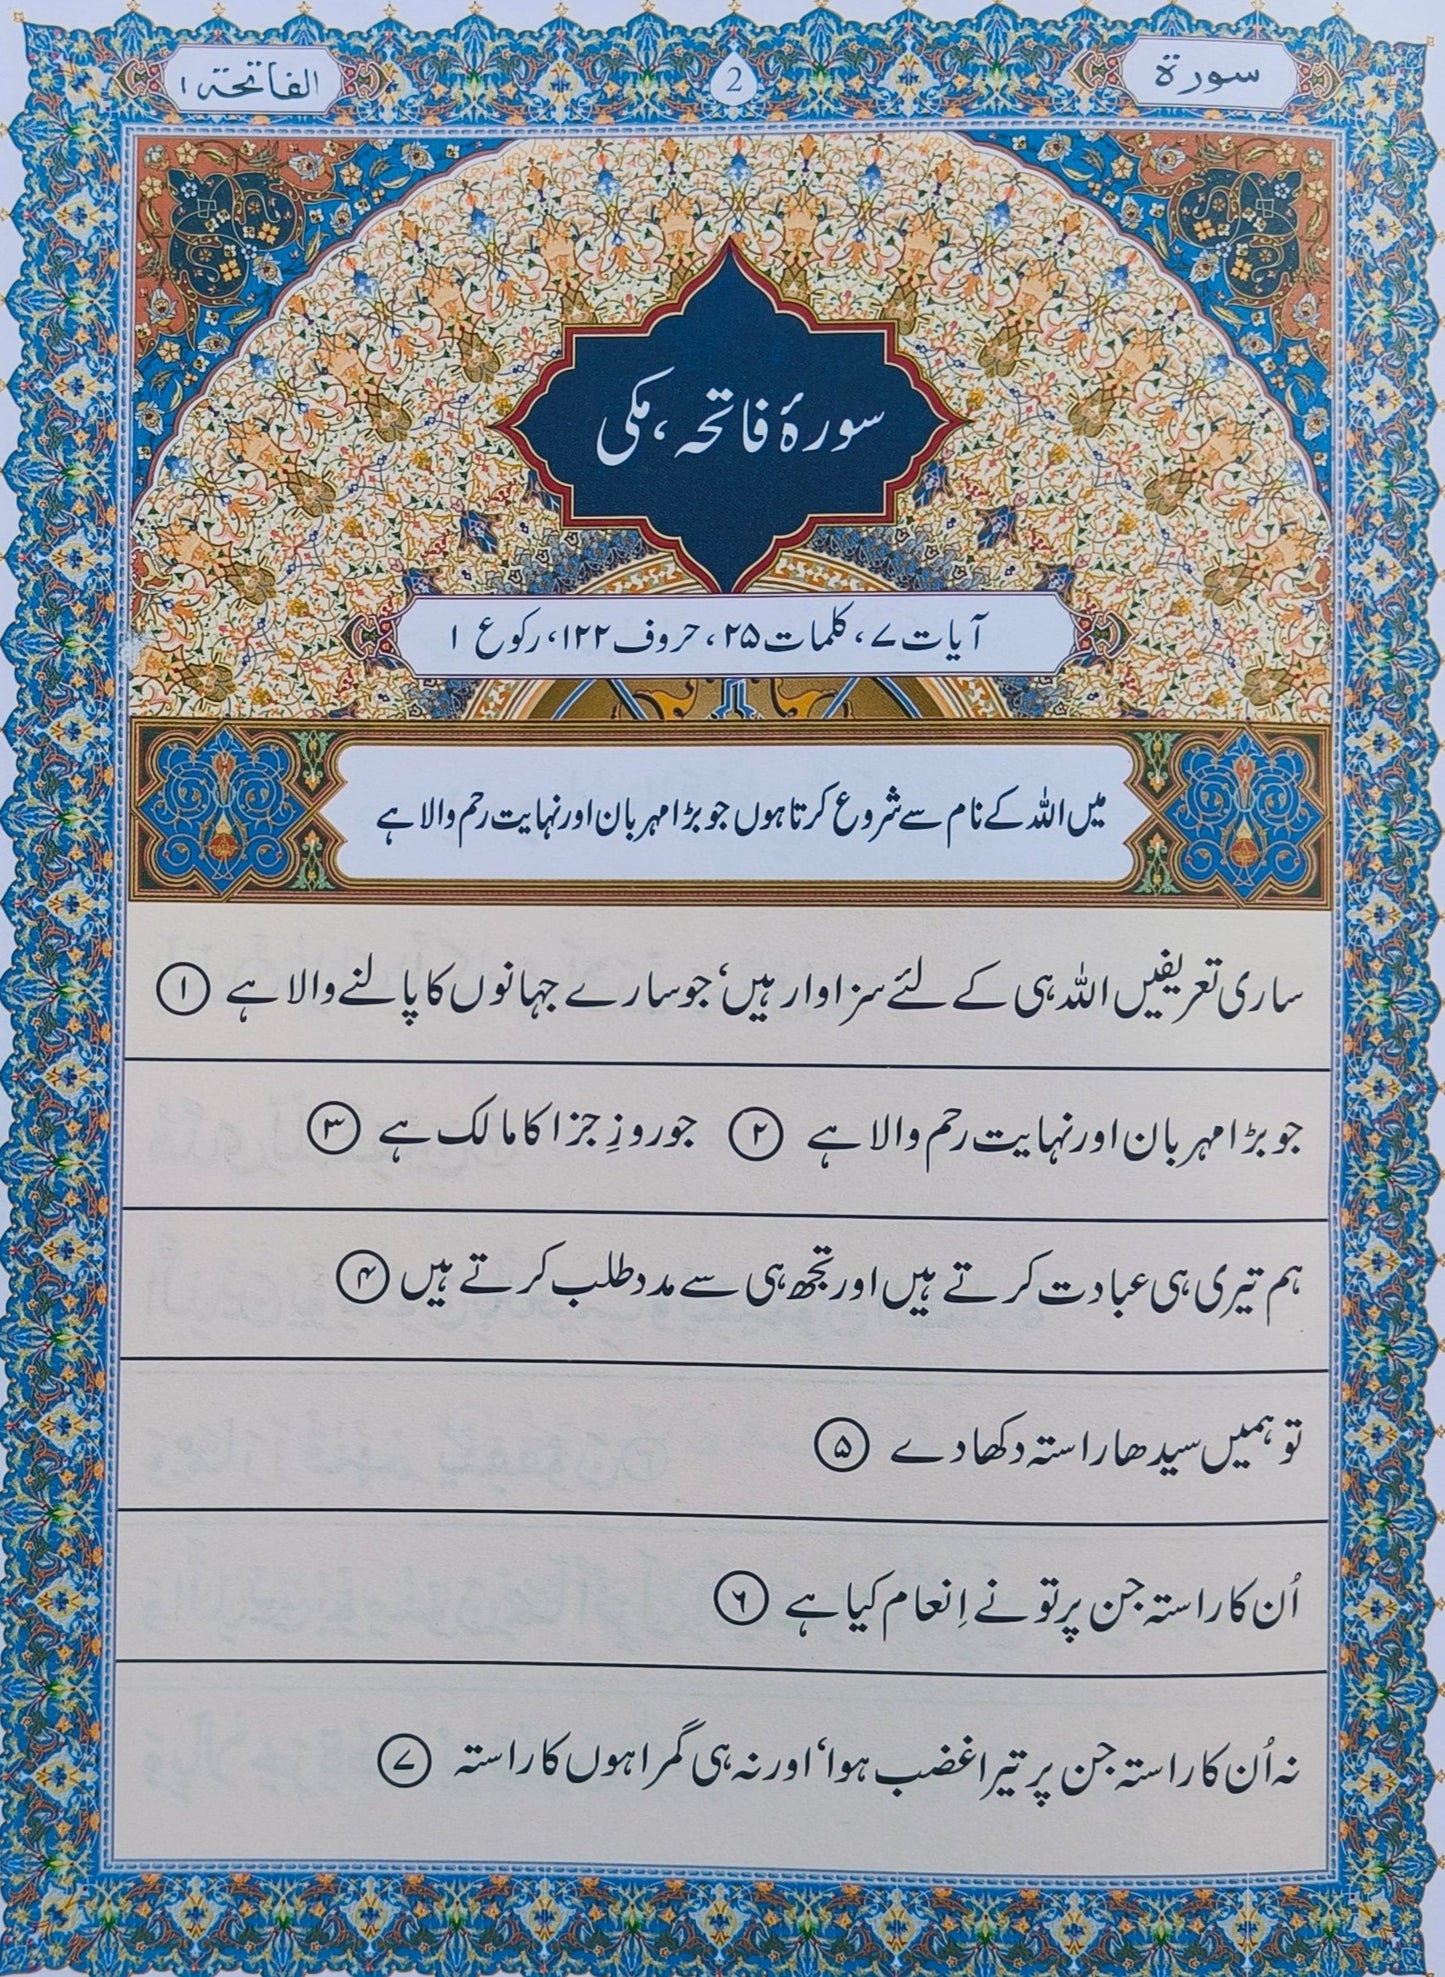 سورة
2
الفاتحة ۱
سورۂ فاتحہ، مکی
آیات ۷، کلمات ۲۵، حروف ۱۲۲، رکوع ۱
میں اللہ کے نام سے شروع کرتا ہوں جو بڑا مہربان اور نہایت رحم والا ہے
ساری تعریفیں اللہ ہی کے لئے سزاوار ہیں، جو سارے جہانوں کا پالنے والا ہے ۱
جو بڑا مہربان اور نہایت رحم والا ہے ۲ جو روزِ جزا کا مالک ہے ۳
ہم تیری ہی عبادت کرتے ہیں اور تجھ ہی سے مدد طلب کرتے ہیں ۴
تو ہمیں سیدھا راستہ دکھا دے ۵
اُن کا راستہ جن پر تو نے اِنعام کیا ہے ۶
نہ اُن کا راستہ جن پر تیرا غضب ہوا، اور نہ ہی گمراہوں کا راستہ ۷